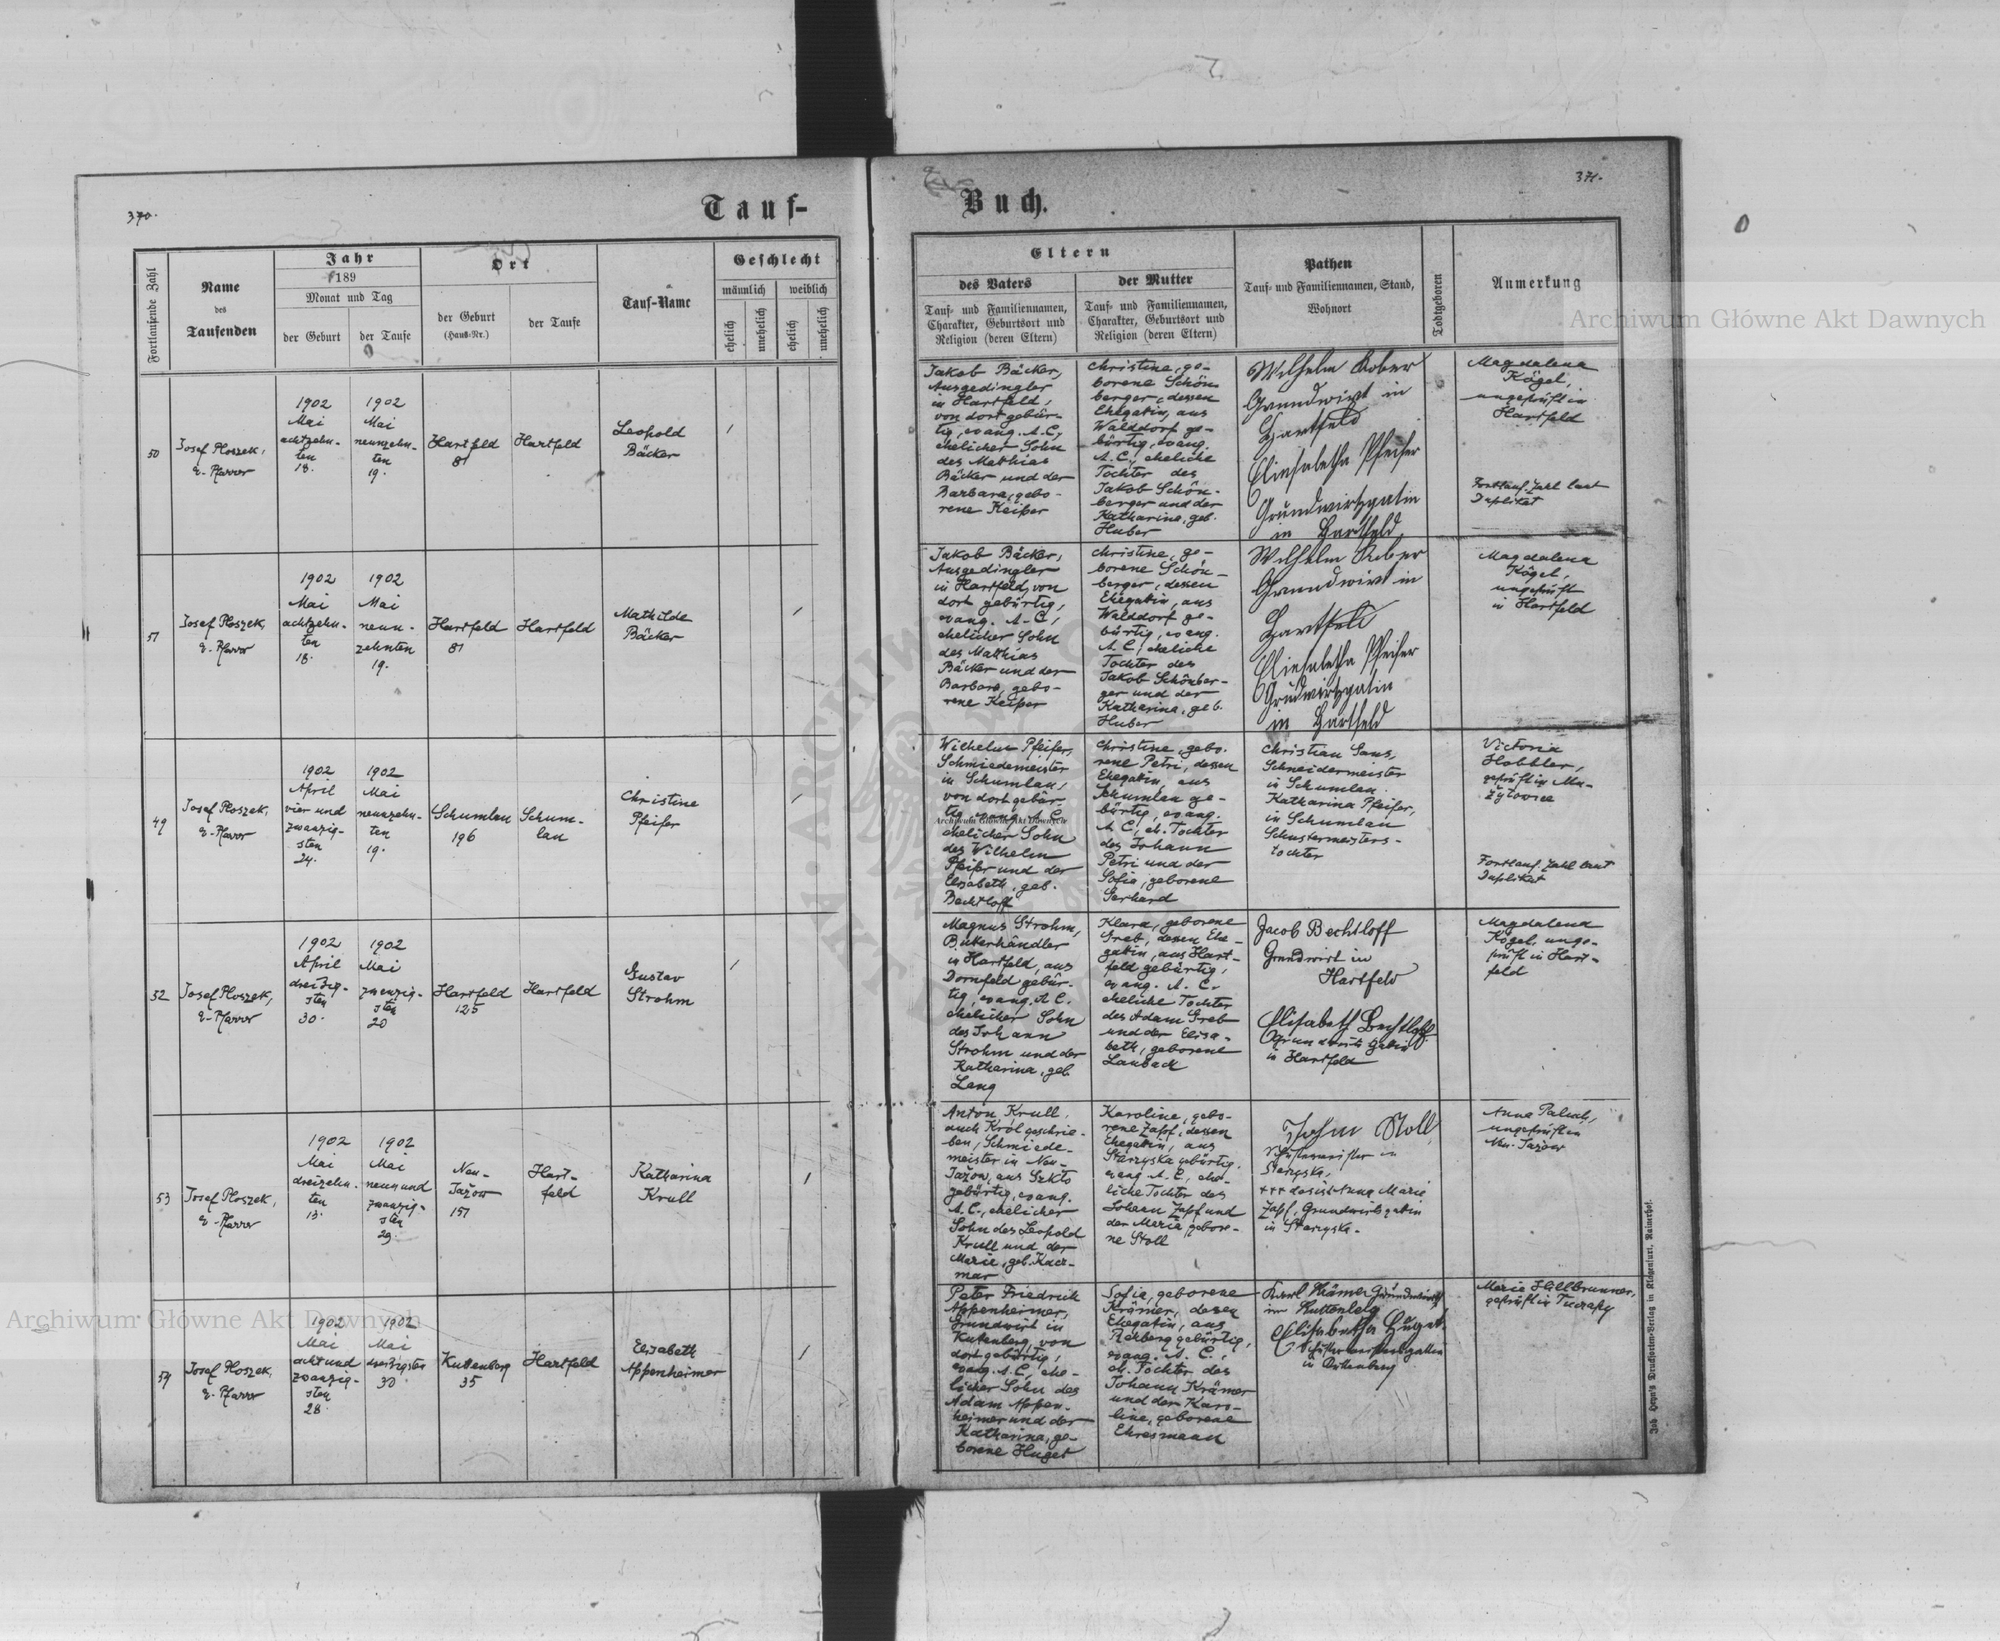 370.
Tauf-
Fortlaufende Zahl
Name
des
Taufenden
Jahr
189
Monat und Tag
der Geburt
der Taufe
Ort
der Geburt
(Haus-Nr.)
der Taufe
Tauf-Name
Geschlecht
männlich
weiblich
ehelich
unehelich
ehelich
unehelich
50
Josef Ploszek,
e. Pfarrer
1902
Mai
achtzehn-
ten
18.
1902
Mai
neunzehn-
ten
19.
Hartfeld
81
Hartfeld
Leopold
Bäcker
51
Josef Ploszek,
e. Pfarrer
1902
Mai
achtzehn-
ten
18.
1902
Mai
neun-
zehnten
19.
Hartfeld
81
Hartfeld
Mathilde
Bäcker
49
Josef Ploszek,
e. Pfarrer
1902
April
vier und
zwanzig-
sten
24.
1902
Mai
neunzehn-
ten
19.
Schumlau
196
Schum-
lau
Christine
Pfeifer
52
Josef Ploszek,
e. Pfarrer
1902
April
dreißig-
sten
30.
1902
Mai
zwanzig-
sten
20
Hartfeld
125
Hartfeld
Gustav
Strohm
53
Josef Ploszek,
e. Pfarrer
1902
Mai
dreizehn-
ten
13.
1902
Mai
neun und
zwanzig-
sten
29.
Neu-
Jažow
157
Hart-
feld
Katharina
Krull
54
Josef Ploszek,
e. Pfarrer
1902
Mai
acht und
zwanzig-
sten
28.
1902
Mai
dreißigsten
30
Kuttenberg
35
Hartfeld
Elisabeth
Appenheimer
371.
Buch.
Eltern
des Vaters
Tauf- und Familiennamen,
Charakter, Geburtsort und
Religion (deren Eltern)
der Mutter
Tauf- und Familiennamen,
Charakter, Geburtsort und
Religion (deren Eltern)
Pathen
Tauf- und Familiennamen, Stand,
Wohnort
Todtgeboren
Anmerkung
Jakob Bäcker,
Ausgedingler
in Hartfeld,
von dort gebür-
tig, evang. A. C.,
ehelicher Sohn
des Mathias
Bäcker und der
Barbara, gebo-
rene Keiper
Christine, ge-
borene Schön-
berger, dessen
Ehegatin, aus
Walddorf ge-
bürtig, evang.
A. C., eheliche
Tochter des
Jakob Schön-
berger und der
Katharina, geb.
Huber
Wilhelm Kober
Grundwirt in
Hartfeld
Eliesabetha Pfeifer
Grundwirtsgatin
in Hartfeld,
Magdalena
Kögel,
ungeprüft in
Hartfeld
Fortlauf. Zahl laut
Duplikat
Jakob Bäcker,
Ausgedingler
in Hartfeld, von
dort gebürtig,
evang. A. C.,
ehelicher Sohn
des Mathias
Bäcker und der
Barbara, gebo-
rene Keiper
Christine, ge-
borene Schön-
berger, dessen
Ehegatin, aus
Walddorf ge-
bürtig, evang.
A. C., eheliche
Tochter des
Jakob Schönber-
ger und der
Katharina, geb.
Huber
Wilhelm Kober
Grundwirt in
Hartfeld
Eliesabetha Pfeifer
Grundwirtsgatin
in Hartfeld
Magdalena
Kögel,
ungeprüft
in Hartfeld
Wilhelm Pfeifer,
Schmiedemeister
in Schumlau,
von dort gebür-
tig, evang. A. C.
ehelicher Sohn
des Wilhelm
Pfeifer und der
Elisabeth, geb.
Bechtloff
Christine, gebo-
rene Petri, dessen
Ehegatin, aus
Schumlau ge-
bürtig, evang.
A. C., eh. Tochter
des Johann
Petri und der
Sofie, geborene
Gerhard
Christian Sans,
Schneidermeister
in Schumlau
Katharina Pfeifer,
in Schumlau
Schustermeisters-
tochter
Victoria
Hobbler,
geprüft in Mu-
żyłowice
Fortlauf. Zahl laut
Duplikat
Magnus Strohm,
in Hartfeld, aus
Dornfeld gebür-
tig, evang. A. C.
ehelicher Sohn
des Johann
Strohm und der
Katharina, geb.
Lang
Klara, geborene
Greb, dessen Ehe-
gatin, aus Hart-
feld gebürtig,
evang. A. C.
eheliche Tochter
des Adam Greb
und der Elisa-
beth, geborene
Lauback
Jacob Bechtloff
Grundwirt in
Hartfeld
Elisabeth Bechtloff
Grundwirts Gatin
in Hartfeld
Magdalena
Kögel, unge-
prüft in Hart-
feld
Anton Krull,
auch Krol geschrie-
ben, Schmiede-
meister in Neu-
Jažow, aus Szkło
gebürtig, evang.
A. C., ehelicher
Sohn des Leopold
Krull und der
Marie, geb. Kacz-
mar
Karoline, gebo-
rene Zapf, dessen
Ehegatin, aus
Starzyska gebürtig,
evang. A. C., ehe-
liche Tochter des
Johann Zapf und
der Marie, gebore-
ne Stoll
Johan Stoll,
in
Starzyska,
+++ Anna Marie
Zapf, Grundwirtsgatin
in Starzyska.
Anna
ungeprüft in
Neu-Jažow
Peter Friedrich
Appenheimer,
Grundwirt in
Kutenberg, von
dort gebürtig,
evang. A. C., ehe-
licher Sohn des
Adam Appen-
heimer und der
Katharina, ge-
borene Huget
Sofie, geborene
Krämer, dessen
Ehegatin, aus
Rehberg gebürtig,
evang. A. C.,
eh. Tochter des
Johann Krämer
und der Karo-
line, geborene
Ehresmann
Karl Krämer Grundwirth
in Kuttenberg
Elisabetha Huget,
in Kuttenberg
Marie Hillbrunner,
geprüft in Tuczapy
Joh. Heyn's Drucksorten-Verlag in Klagenfurt, Rainerhof.
Archiwum Główne Akt Dawnych
Archiwum Główne Akt Dawnych
Archiwum Główne Akt Dawnych